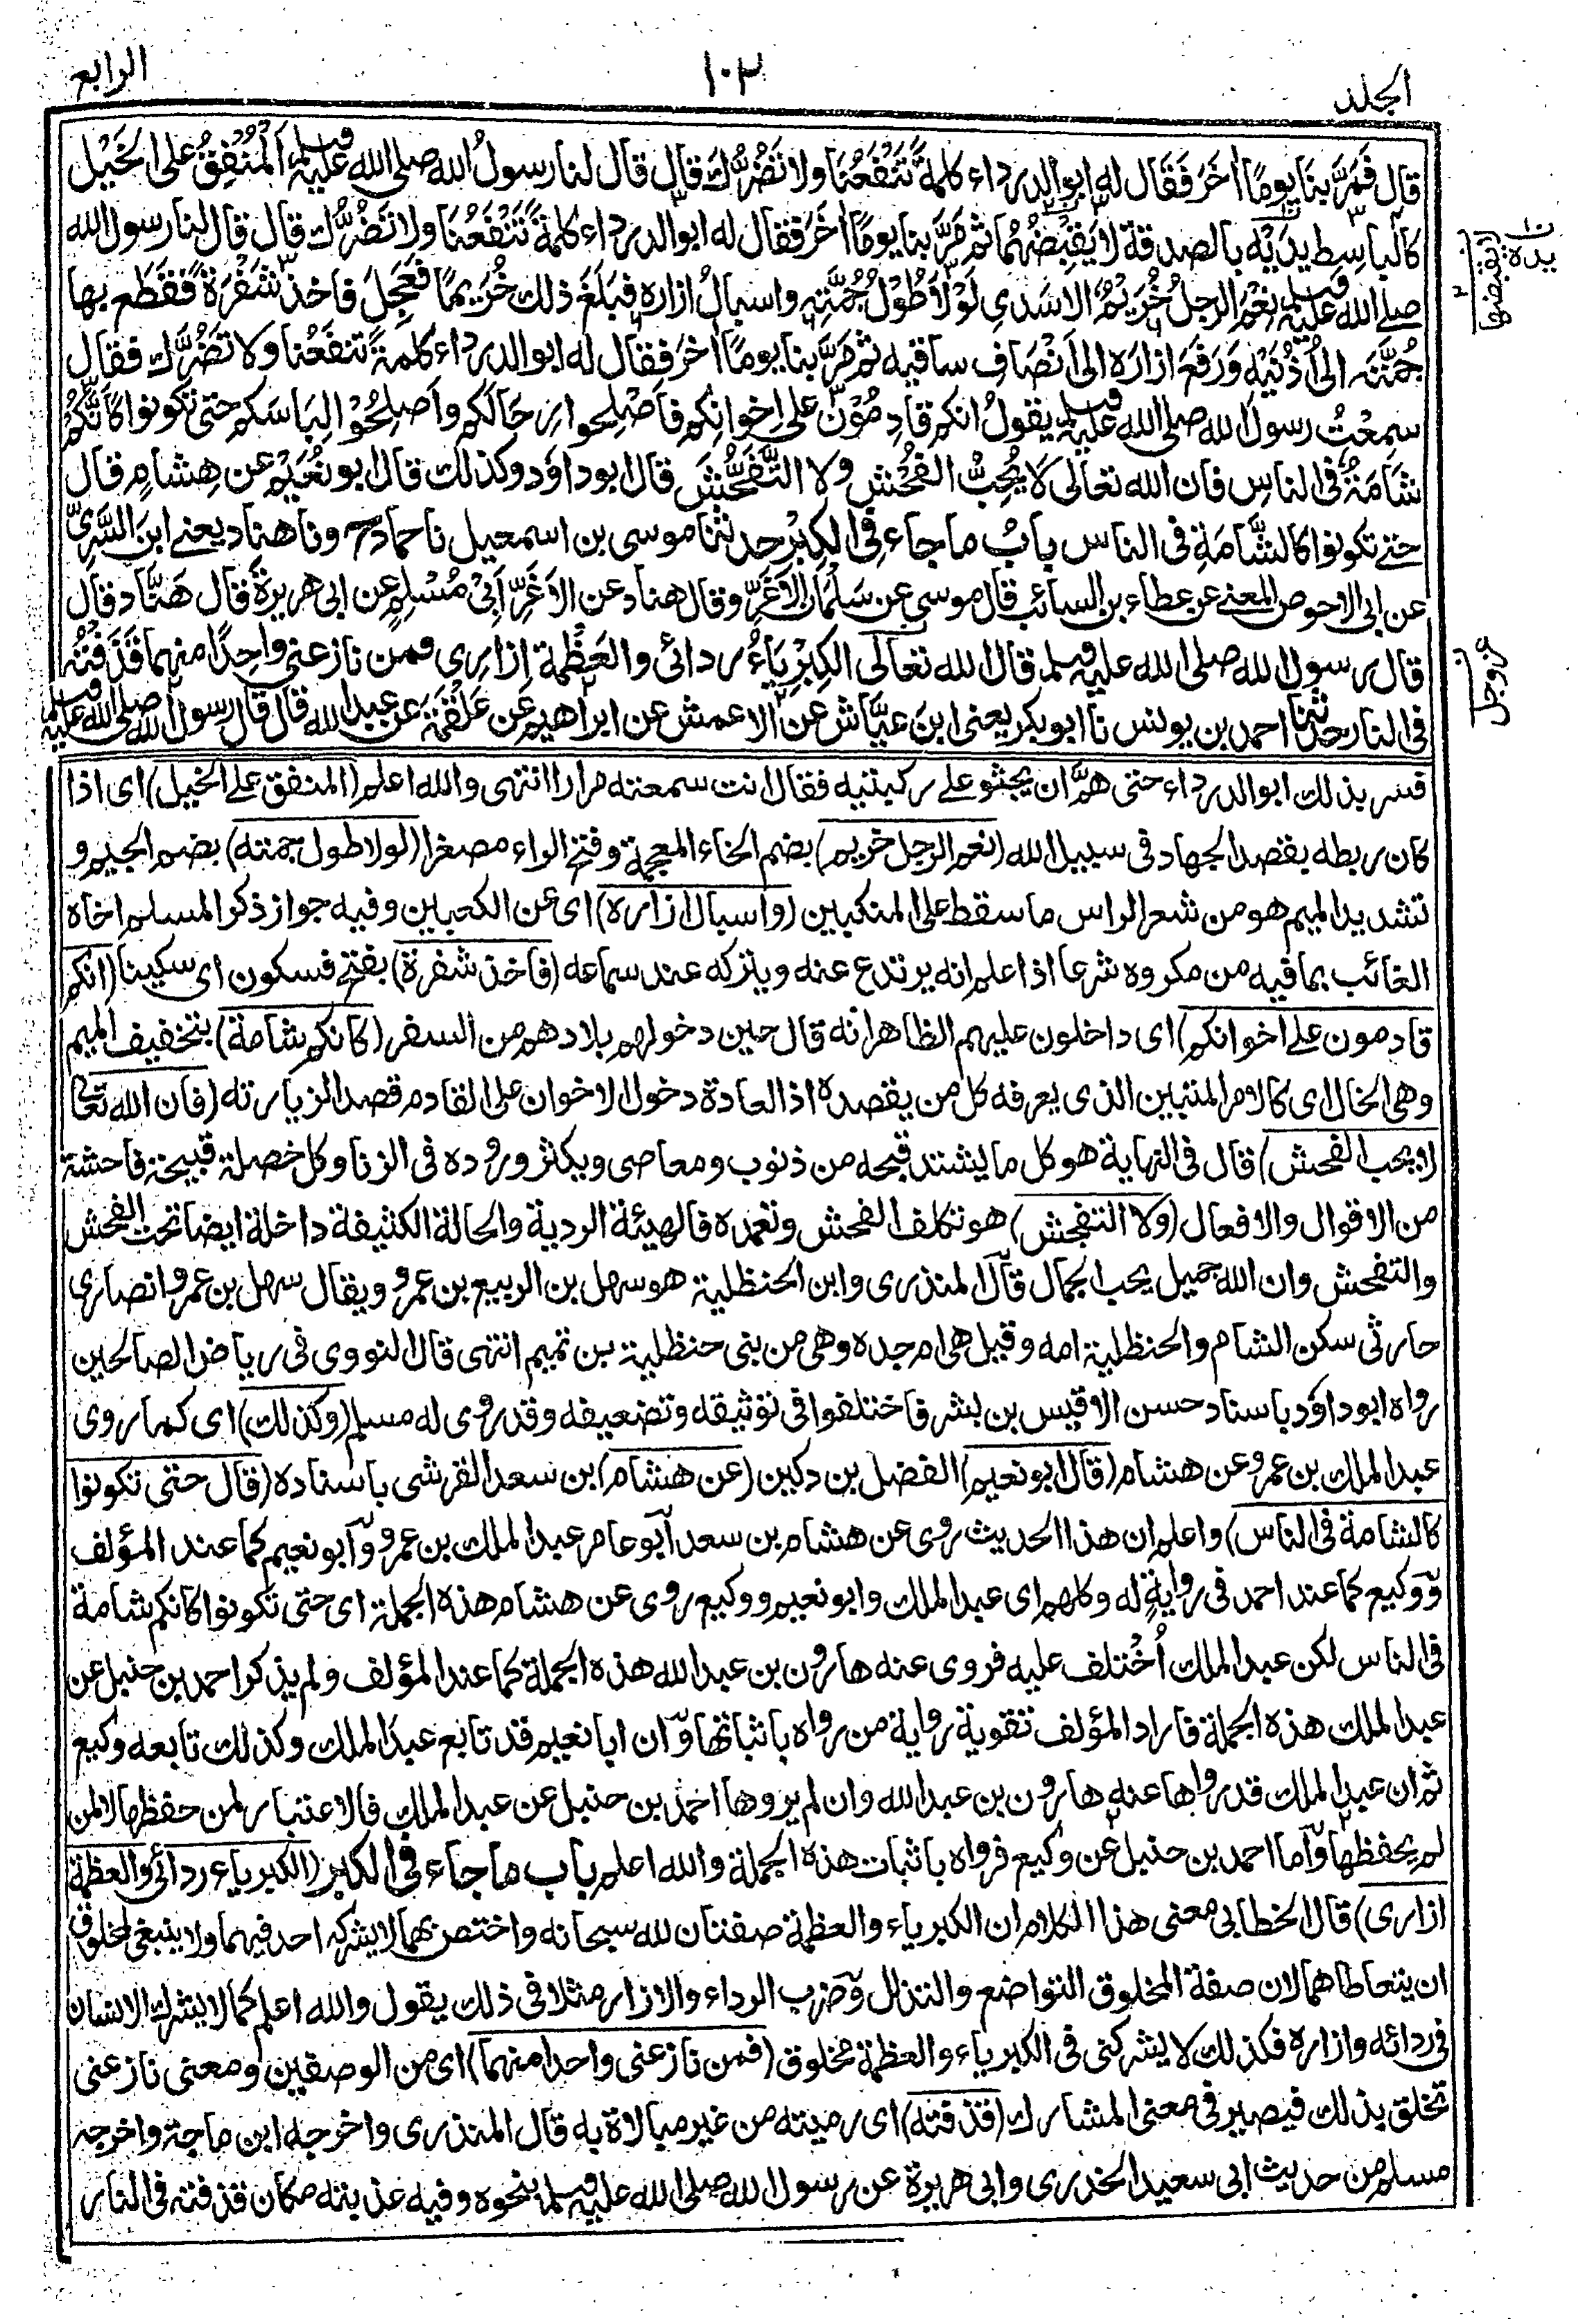 الجلد
١٠٣
الرابع
قال فَمَرَّ بنا يومًا اٰخَرَ فَقَال له ابو الدرداء كلمةً تَنْفَعُنَا ولا تَضُرُّكَ قال قال لنا رسولُ الله صلى الله عليه وسلم اَلْمُنْفِقُ على الخَيْل
كالباسِطِ يدَيْه بالصدقة لا يَقْبِضُهُمَا ثم مَرَّ بنا يومًا اٰخَرَ فقال له ابو الدرداء كلمةً تَنْفَعُنَا ولا تَضُرُّك قال قال لنا رسول الله
صلى الله عليه وسلم نِعْمَ الرجلُ خُرَيْمٌ الاسَدي لَوْلَا طُوْلُ جُمَّتِهِ واسبالُ ازاره فبَلَغَ ذلك خُرَيمًا فعَجِلَ فاخذ شَفْرَةً فَقَطَع بها
جُمَّتَه الى اُذُنَيْه وَرَفَعَ ازارَه الى اَنْصَافِ ساقيه ثم مَرَّ بنا يومًا اٰخَرَ فقال له ابو الدرداء كلمةً تنفَعُنا ولا تَضُرُّك فقال
سمِعْتُ رسولَ الله صلى الله عليه وسلم يقولُ انكم قادِمُوْنَ على اِخوانِكم فاَصْلِحوا رِحَالَكم واَصلِحُوْا لِبَاسَكم حتى تكونوا كاَنَّكُمْ
شَامَةٌ فى الناسِ فان الله تعالى لَا يُحِبُّ الفُحْشَ ولا التَّفَحُّشَ قال ابو داؤد وكذلك قال ابو نُعَيْمٍ عن هِشامٍ قال
حتى تكونوا كالشَّامَةِ فى الناس بابُ ما جاء فى الكِبْر حدثنا موسى بن اسمعيل نا حماد ح ونا هناد يعنى ابنَ السَّرِيِّ
عن ابى الاحوص المعنى عن عطاء بن السائب قال موسى عن سَلْمَان الاَغَرِّ وقال هناد عن الاَغَرِّ اَبِىْ مُسْلِمٍ عن ابى هريرةَ قال هَنَّاد قال
قال رسول الله صلى الله عليه وسلم قال الله تعالى الكِبْرِيَاءُ ردائى والعَظَمةُ اِزارِى فمن نازعنى واحِدًا منهما قَذَفْتُه
فى النار حدثنا احمد بن يونس نا ابو بكر يعنى ابنَ عيَّاش عن الاعمش عن ابراهيم عن عَلْقَمَةَ عن عبد الله قال قال رسول الله صلى الله عليه وسلم
يده
لا يقبضها
عز وجل
فسر بذلك ابو الدرداء حتى همَّ ان يجثو على ركبتيه فقال انت سمعته مرارا انتهى والله اعلم (المنفق على الخيل) اى اذا
كان ربطه يقصد الجهاد فى سبيل الله (نعم الرجل خريم) بضم الخاء المعجمة وفتح الراء مصغرا (لولا طول جمته) بضم الجيم و
تشديد الميم هو من شعر الراس ما سقط على المنكبين (واسبال ازاره) اى عن الكعبين وفيه جواز ذكر المسلم اخاه
الغائب بما فيه من مكروه شرعا اذا علم انه يرتدع عنه ويتركه عند سماعه (فاخذ شفرة) بفتح فسكون اى سكينا (انكم
قادمون على اخوانكم) اى داخلون عليهم الظاهر انه قال حين دخولهم بلادهم من السفر (كانكم شامة) بتخفيف الميم
وهى الخال اى كالامر المتبين الذى يعرفه كل من يقصده اذ العادة دخول الاخوان على القادم قصد الزيارته (فان الله تعالى
لا يحب الفحش) قال فى النهاية هو كل ما يشتد قبحه من ذنوب ومعاصى ويكثر وروده فى الزنا وكل خصلة قبيحة فاحشة
من الاقوال والافعال (ولا التفحش) هو تكلف الفحش وتعمده فالهيئة الردية والحالة الكثيفة داخلة ايضا تحت الفحش
والتفحش وان الله جميل يحب الجمال قال المنذرى وابن الحنظلية هو سهل بن الربيع بن عمرو ويقال سهل بن عمرو انصارى
حارثى سكن الشام والحنظلية امه وقيل هى ام جده وهى من بنى حنظلية بن تميم انتهى قال النووى فى رياض الصالحين
رواه ابو داؤد باسناد حسن الا قيس بن بشر فاختلفوا فى توثيقه وتضعيفه وقد روى له مسلم (وكذلك) اى كما روى
عبد الملك بن عمرو عن هشام (قال ابو نعيم) الفضل بن دكين (عن هشام) بن سعد القرشى باسناده (قال حتى تكونوا
كالشامة فى الناس) واعلم ان هذا الحديث روى عن هشام بن سعد ابو عامر عبد الملك بن عمرو وابو نعيم كما عند المؤلف
ووكيع كما عند احمد فى روايةٍ له وكلهم اى عبد الملك وابو نعيم ووكيع روى عن هشام هذه الجملة اى حتى تكونوا كانكم شامة
فى الناس لكن عبد الملك اُختلف عليه فروى عنه هارون بن عبد الله هذه الجملة كما عند المؤلف ولم يذكر احمد بن حنبل عن
عبد الملك هذه الجملة فاراد المؤلف تقوية رواية من رواه باثباتها وان ابا نعيم قد تابع عبد الملك وكذلك تابعه وكيع
ثم ان عبد الملك قد رواها عنه هارون بن عبد الله وان لم يروها احمد بن حنبل عن عبد الملك فالاعتبار لمن حفظها لا لمن
لم يحفظها واما احمد بن حنبل عن وكيع فرواه باثبات هذه الجملة والله اعلم باب ما جاء فى الكبر (الكبرياء ردائى والعظمة
ازارى) قال الخطابى معنى هذا الكلام ان الكبرياء والعظمة صفتان لله سبحانه واختص بهما لا يشركه احد فيهما ولا ينبغى لمخلوق
ان يتعاطاهما لان صفة المخلوق التواضع والتذلل وضرب الرداء والازار مثلا فى ذلك يقول والله اعلم كما لا يشرك الانسان
فى ردائه وازاره فكذلك لا يشركنى فى الكبرياء والعظمة مخلوق (فمن نازعنى واحدا منهما) اى من الوصفين ومعنى نازعنى
تخلق بذلك فيصير فى معنى المشارك (قذفته) اى رميته من غير مبالاة به قال المنذرى واخرجه ابن ماجة واخرجه
مسلم من حديث ابى سعيد الخدرى وابى هريرة عن رسول الله صلى الله عليه وسلم بنحوه وفيه عذبته مكان قذفته فى النار